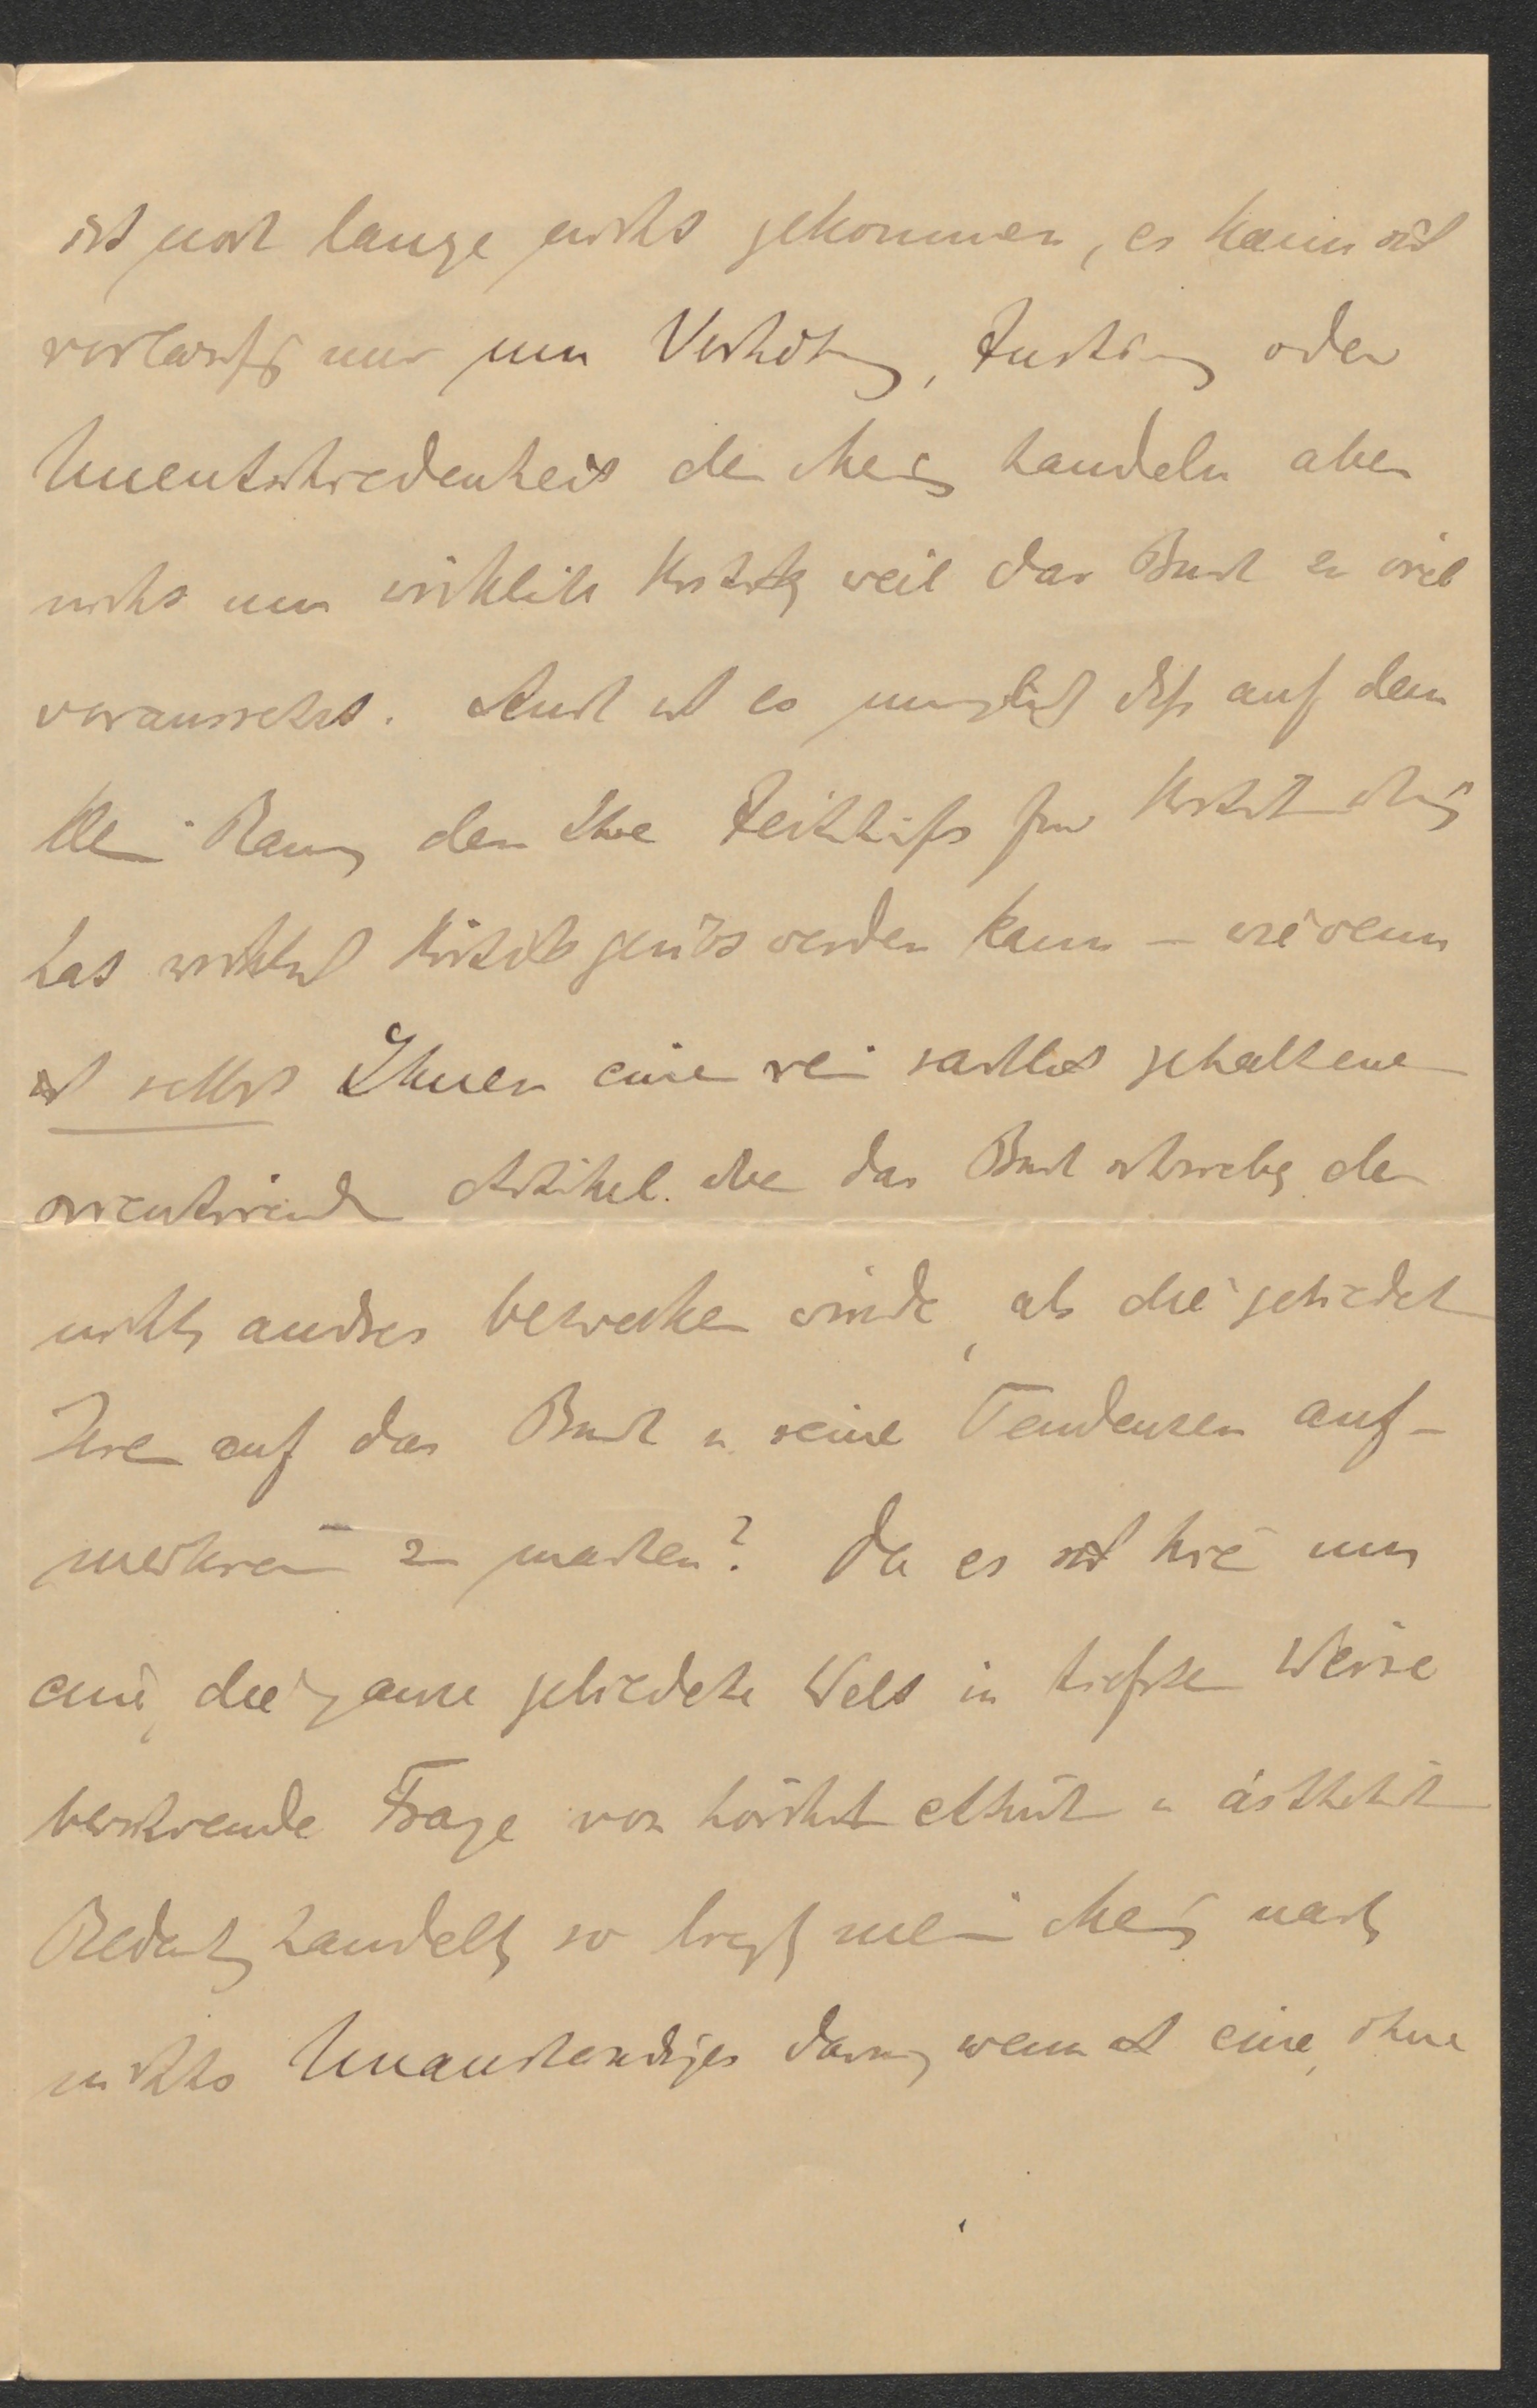 ist noch lange nicht gekommen, es kann sich
vorläufig nur um Verhöhnung, Zustimmung oder
Unentschiedenheit der Meinung handeln aber
nicht um wirkliche Kritik weil das Buch zu viel
voraussetzt. Auch ist es unmöglich daß auf dem
kleinen Raum, den Ihre Zeitschrift für
hat wirklich Kritik geübt werden kann – wie wenn
ich selbst Ihnen einen rein sachlich gehaltenen
orientirenden Artikel über das Buch schriebe, der
nichts andres bezwecken würde, als die gebildeten
Leser auf das Buch u. seine Tendenzen auf-
merksam zu machen? Da es sich hier um
eine, die ganze gebildete Welt in tiefster Weise
berührende Frage von höchster ethischer u. ästhetischer
Bedeutung handelt, so liegt meiner Meinung nach
nichts Unanständiges darin, wenn ich eine, ohne